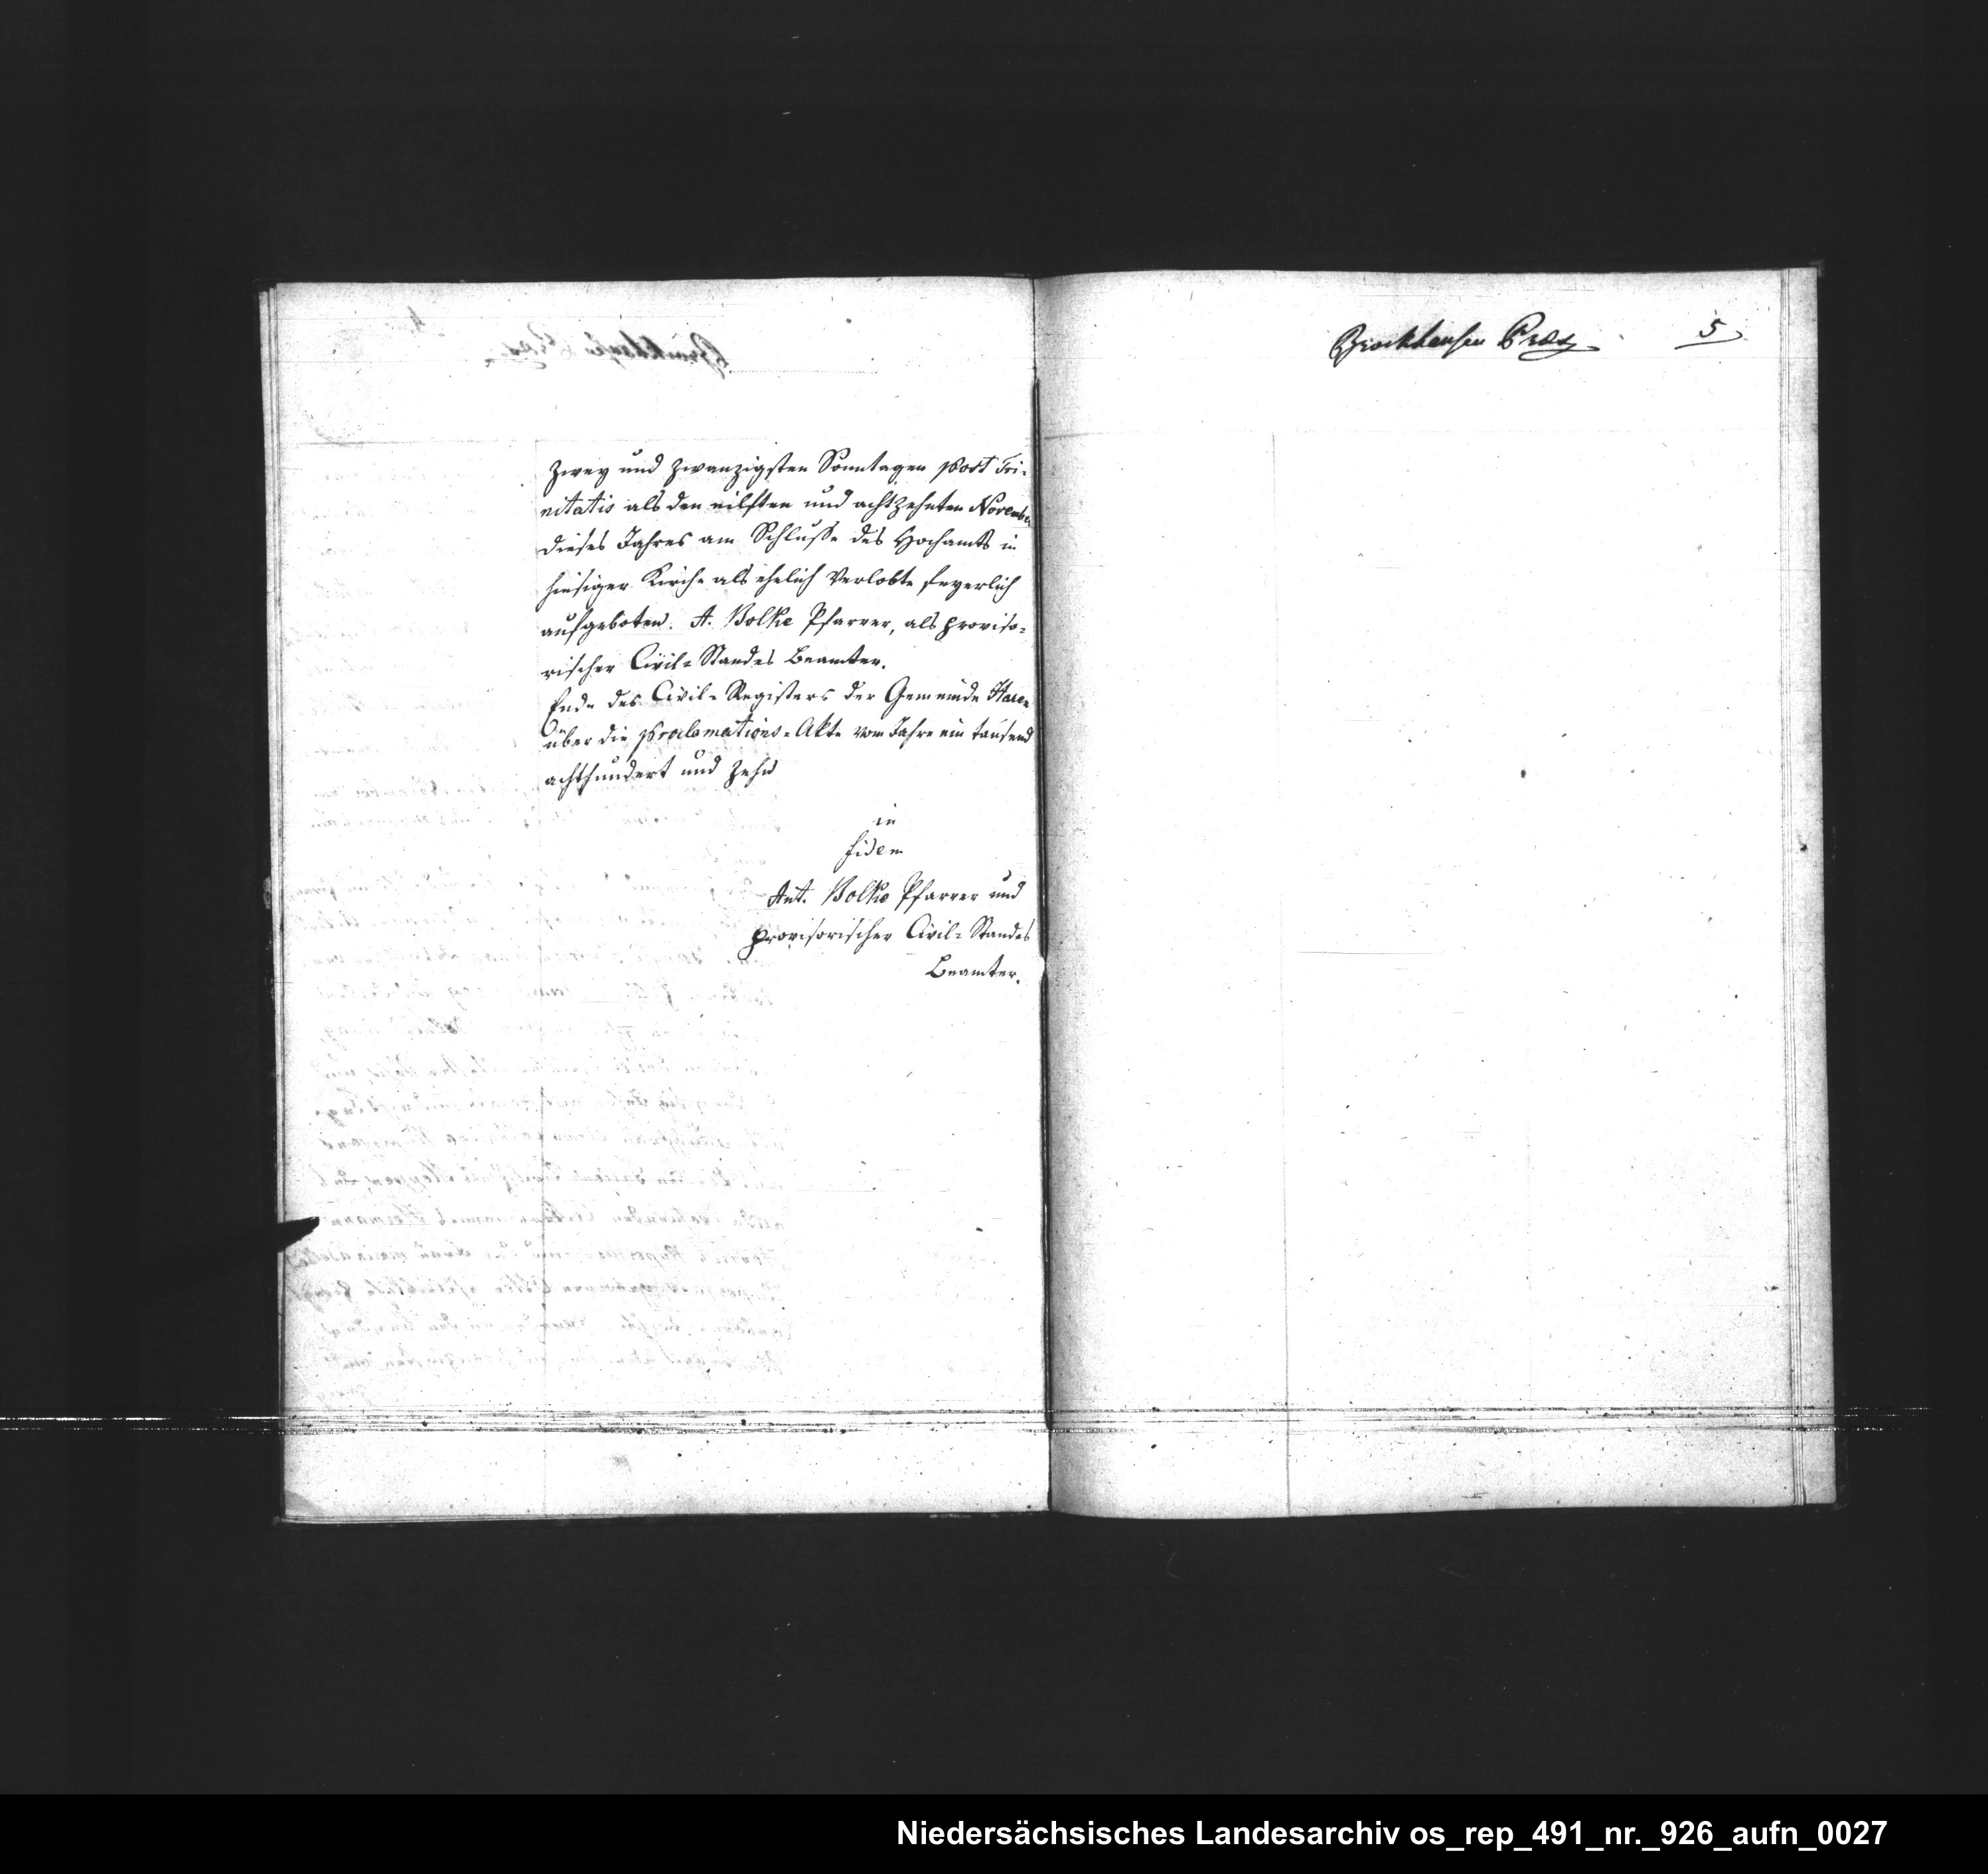 zwey und zwanzigsten Sonntagen post Tri-
nitatis als den eilften und achtzehnten November
dieses Jahres am Schlusse des Hochamts in
hiesiger Kirche als ehelich Verlobte feyerlich
aufgeboten. A. Bolke Pfarrer, als proviso-
rischer Civil-Standes Beamter.
Ende des Civil-Registers der Gemeinde Haren
über die Proclamations-Akte vom Jahre ein tausend
achthundert und zehn
in
fidem
Ant. Bolke Pfarrer und
provisorischer Civil-Standes
Beamter.
Brockhausen Präs
5
Niedersächsisches Landesarchiv os_rep_491_nr._926_aufn_0027